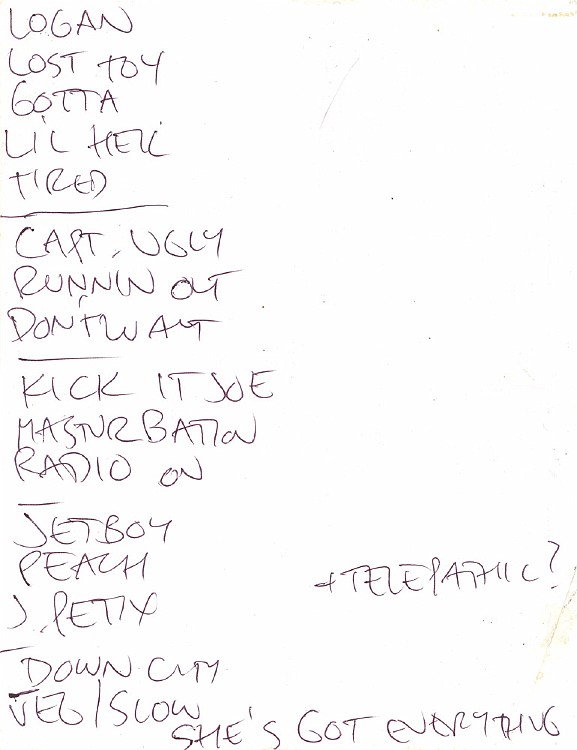 LOGAN
LOST TOY
GOTTA
LIL HELL
TIRED
CAPT. UGLY
RUNNIN OUT
DON'T WAIT
KICK IT JOE
MASTURBATION
RADIO ON
JETBOY
PEACH
+ TELEPATHIC?
J. PETTY
DOWN CITY
VEG/SLOW
SHE'S GOT EVERYTHING